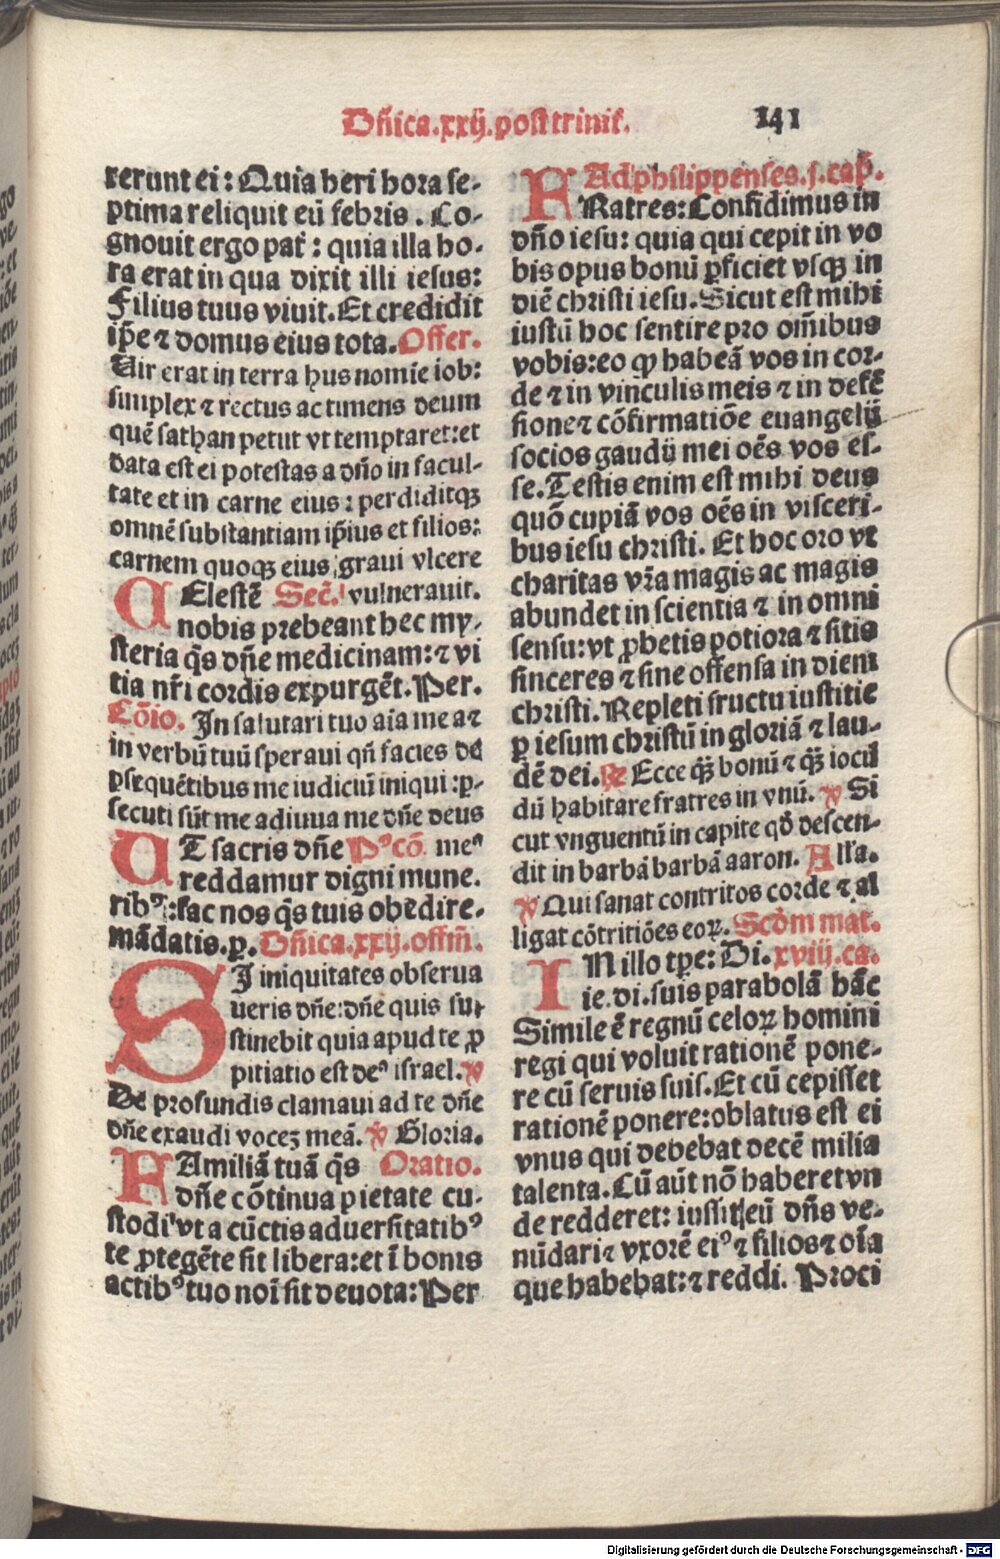 Dñica.xxij.post trinit̄.
141
rerunt ei: Quia heri hora se-
ptima reliquit eū febris. Co-
gnouit ergo pat̄: quia illa ho-
ra erat in qua dixit illi iesus:
Filius tuus viuit. Et credidit
ip̄e ⁊ domus eius tota. Offer.
Uir erat in terra hus nomīe iob:
simplex ⁊ rectus ac timens deum
quē sathan petiit vt temptaret: et
data est ei potestas a dño in facul-
tate et in carne eius: perdiditqꝫ
omnē substantiam ip̄ius et filios:
carnem quoqꝫ eius graui vlcere
CElestē Sec̄. vulnerauit.
nobis prebeant hec my-
steria q̄s dñe medicinam: ⁊ vi
tia nr̄i cordis expurgēt. Per.
Cōio. In salutari tuo aīa mea ⁊
in verbū tuū speraui qñ facies de
ꝑsequētibus me iudiciū iniqui: ꝑ-
secuti sūt me adiuua me dñe deus
UT sacris dñe Pꝰcō. meꝰ
reddamur digni mune-
ribꝰ: fac nos q̄s tuis obedire
mādatis. ꝑ. Dñica.xxij. offm̄.
SI iniquitates obserua
ueris dñe: dñe quis su-
stinebit quia apud te ꝓ
pitiatio est deꝰ israel. ℣
De profundis clamaui ad te dñe
dñe exaudi voceꝫ meā. ℣ Gloria.
FAmiliā tuā q̄s Oratio.
dñe cōtinua pietate cu-
stodi vt a cūctis aduersitatibꝰ
te ꝓtegēte sit libera: et ī bonis
actibꝰ tuo noī sit deuota: Per
Ad philippenses. j. cap̄.
FRatres: Confidimus in
dño iesu: quia qui cepit in vo
bis opus bonū ꝑficiet vsqꝫ in
diē christi iesu. Sicut est mihi
iustū hoc sentire pro om̄ibus
vobis: eo ꝙ habeā vos in cor-
de ⁊ in vinculis meis ⁊ in defē
sione ⁊ cōfirmatiōe euangelij
socios gaudij mei oēs vos es-
se. Testis enim est mihi deus
quō cupiā vos oēs in visceri-
bus iesu christi. Et hoc oro vt
charitas vr̄a magis ac magis
abundet in scientia ⁊ in omni
sensu: vt ꝓbetis potiora ⁊ sitis
sinceres ⁊ sine offensa in diem
christi. Repleti fructu iustitie
ꝑ iesum christū in gloriā ⁊ lau-
dē dei. ℟ Ecce q̄ꝫ bonū ⁊ q̄ꝫ iocū
dū habitare fratres in vnū. ℣ Si
cut vnguentū in capite qd̄ descen-
dit in barbā barbā aaron. Alla.
℣ Qui sanat contritos corde ⁊ al
ligat cōtritiōes eoꝝ. Scd̄m mat.
IN illo tꝑe: Di. xviij. ca.
ie. di. suis parabolā hāc
Simile ē regnū celoꝝ homini
regi qui voluit rationē pone-
re cū seruis suis. Et cū cepisset
rationē ponere: oblatus est ei
vnus qui debebat decē milia
talenta. Cū aūt nō haberet vn
de redderet: iussit eū dn̄s ve-
nūdari ⁊ vxorē eiꝰ ⁊ filios ⁊ oīa
que habebat: ⁊ reddi. Proci
Digitalisierung gefördert durch die Deutsche Forschungsgemeinschaft - DFG